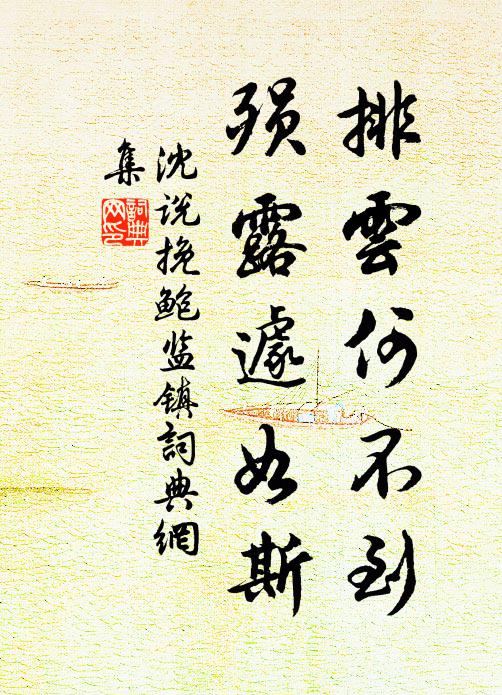 排雲何不到
殞露遽如斯
沈说挽鲍监镇詞典網
集
詞典
网印